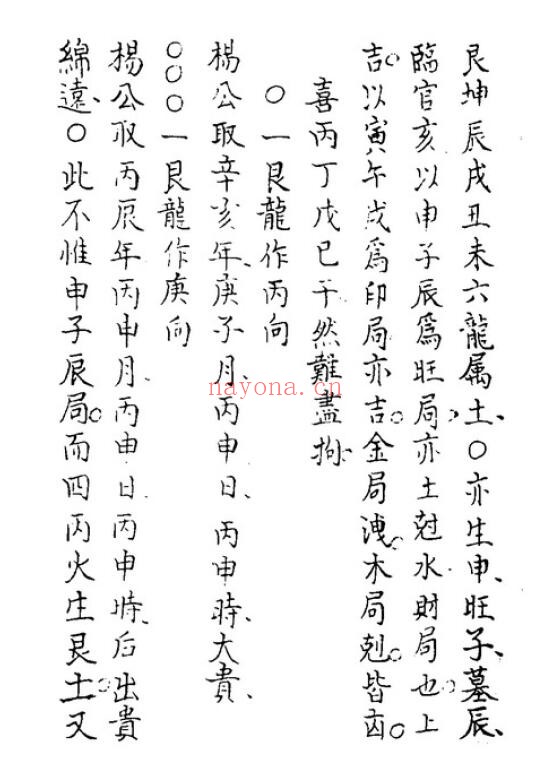 艮坤辰戌丑未六龍属土、〇亦生申、旺子、墓辰、
臨官亥以申子辰爲旺局、亦土尅水財局也、上
吉。以寅午戌爲印局亦吉。金局洩。木局剋。皆凶。
喜丙丁戊巳干然難盡拘、
〇一艮龍作丙向
楊公取辛亥年、庚子月、丙申日、丙申時、大貴、
〇〇〇一艮龍作庚向
楊公取丙辰年丙申月、丙申日、丙申時、后出貴
綿遠、〇此不惟申子辰局。而四丙火生艮土。又
nayona.cn